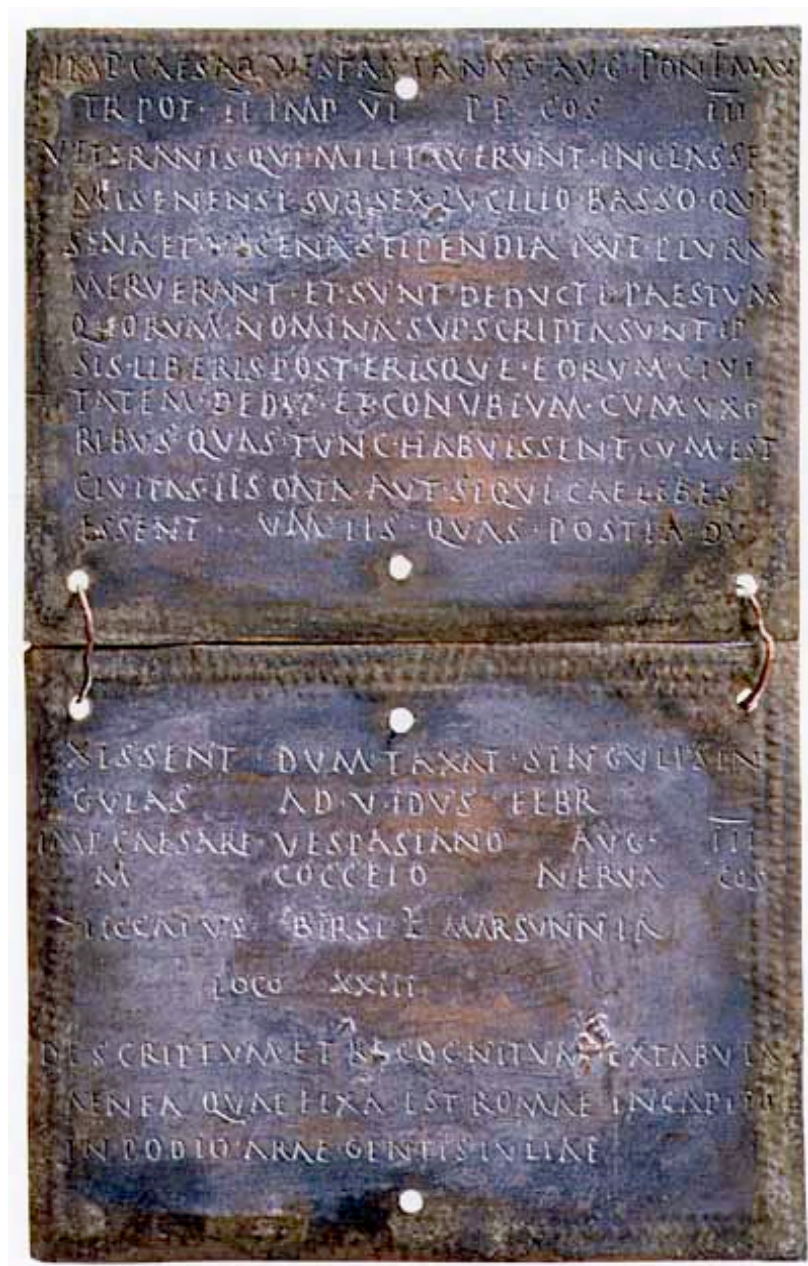 IMP CAESAR VESPASIANVS AVG PONT MAX
TR POT · II IMP VI P P COS III
VETERANIS QVI MILITAVERVNT · IN CLASSE
MISENENSI · SVB · SEX · LVCILIO BASSO · QVI
SENA ET VICENA STIPENDIA AVT PLVRA
MERVERANT · ET · SVNT · DEDVCTI · PAESTVM
QVORVM NOMINA SVPSCRIPTA SVNT IP
SIS · LIBERIS POSTERISQVE · EORVM CIVI
TATEM DEDIT ET CONVBIVM · CVM VXO
RIBVS QVAS · TVNC · HABVISSENT CVM · EST
CIVITAS · IIS DATA · AVT · SIQVI CAELIBES
ESSENT VM IIS QVAS · POSTEA DV
XISSENT DVM TAXAT · SINGVLI SIN
GVLAS AD · V IDVS FEBR
IMP CAESARE VESPASIANO AVG · III
M COCCEIO NERVA COS
BIRSI F MARSVNNIA
LOCO XXIII
DESCRIPTVM ET RECOGNITVM EX TABVLA
AENEA QVAE FIXA EST ROMAE IN CAPITO
IN PODIO ARAE GENTIS IVLIAE